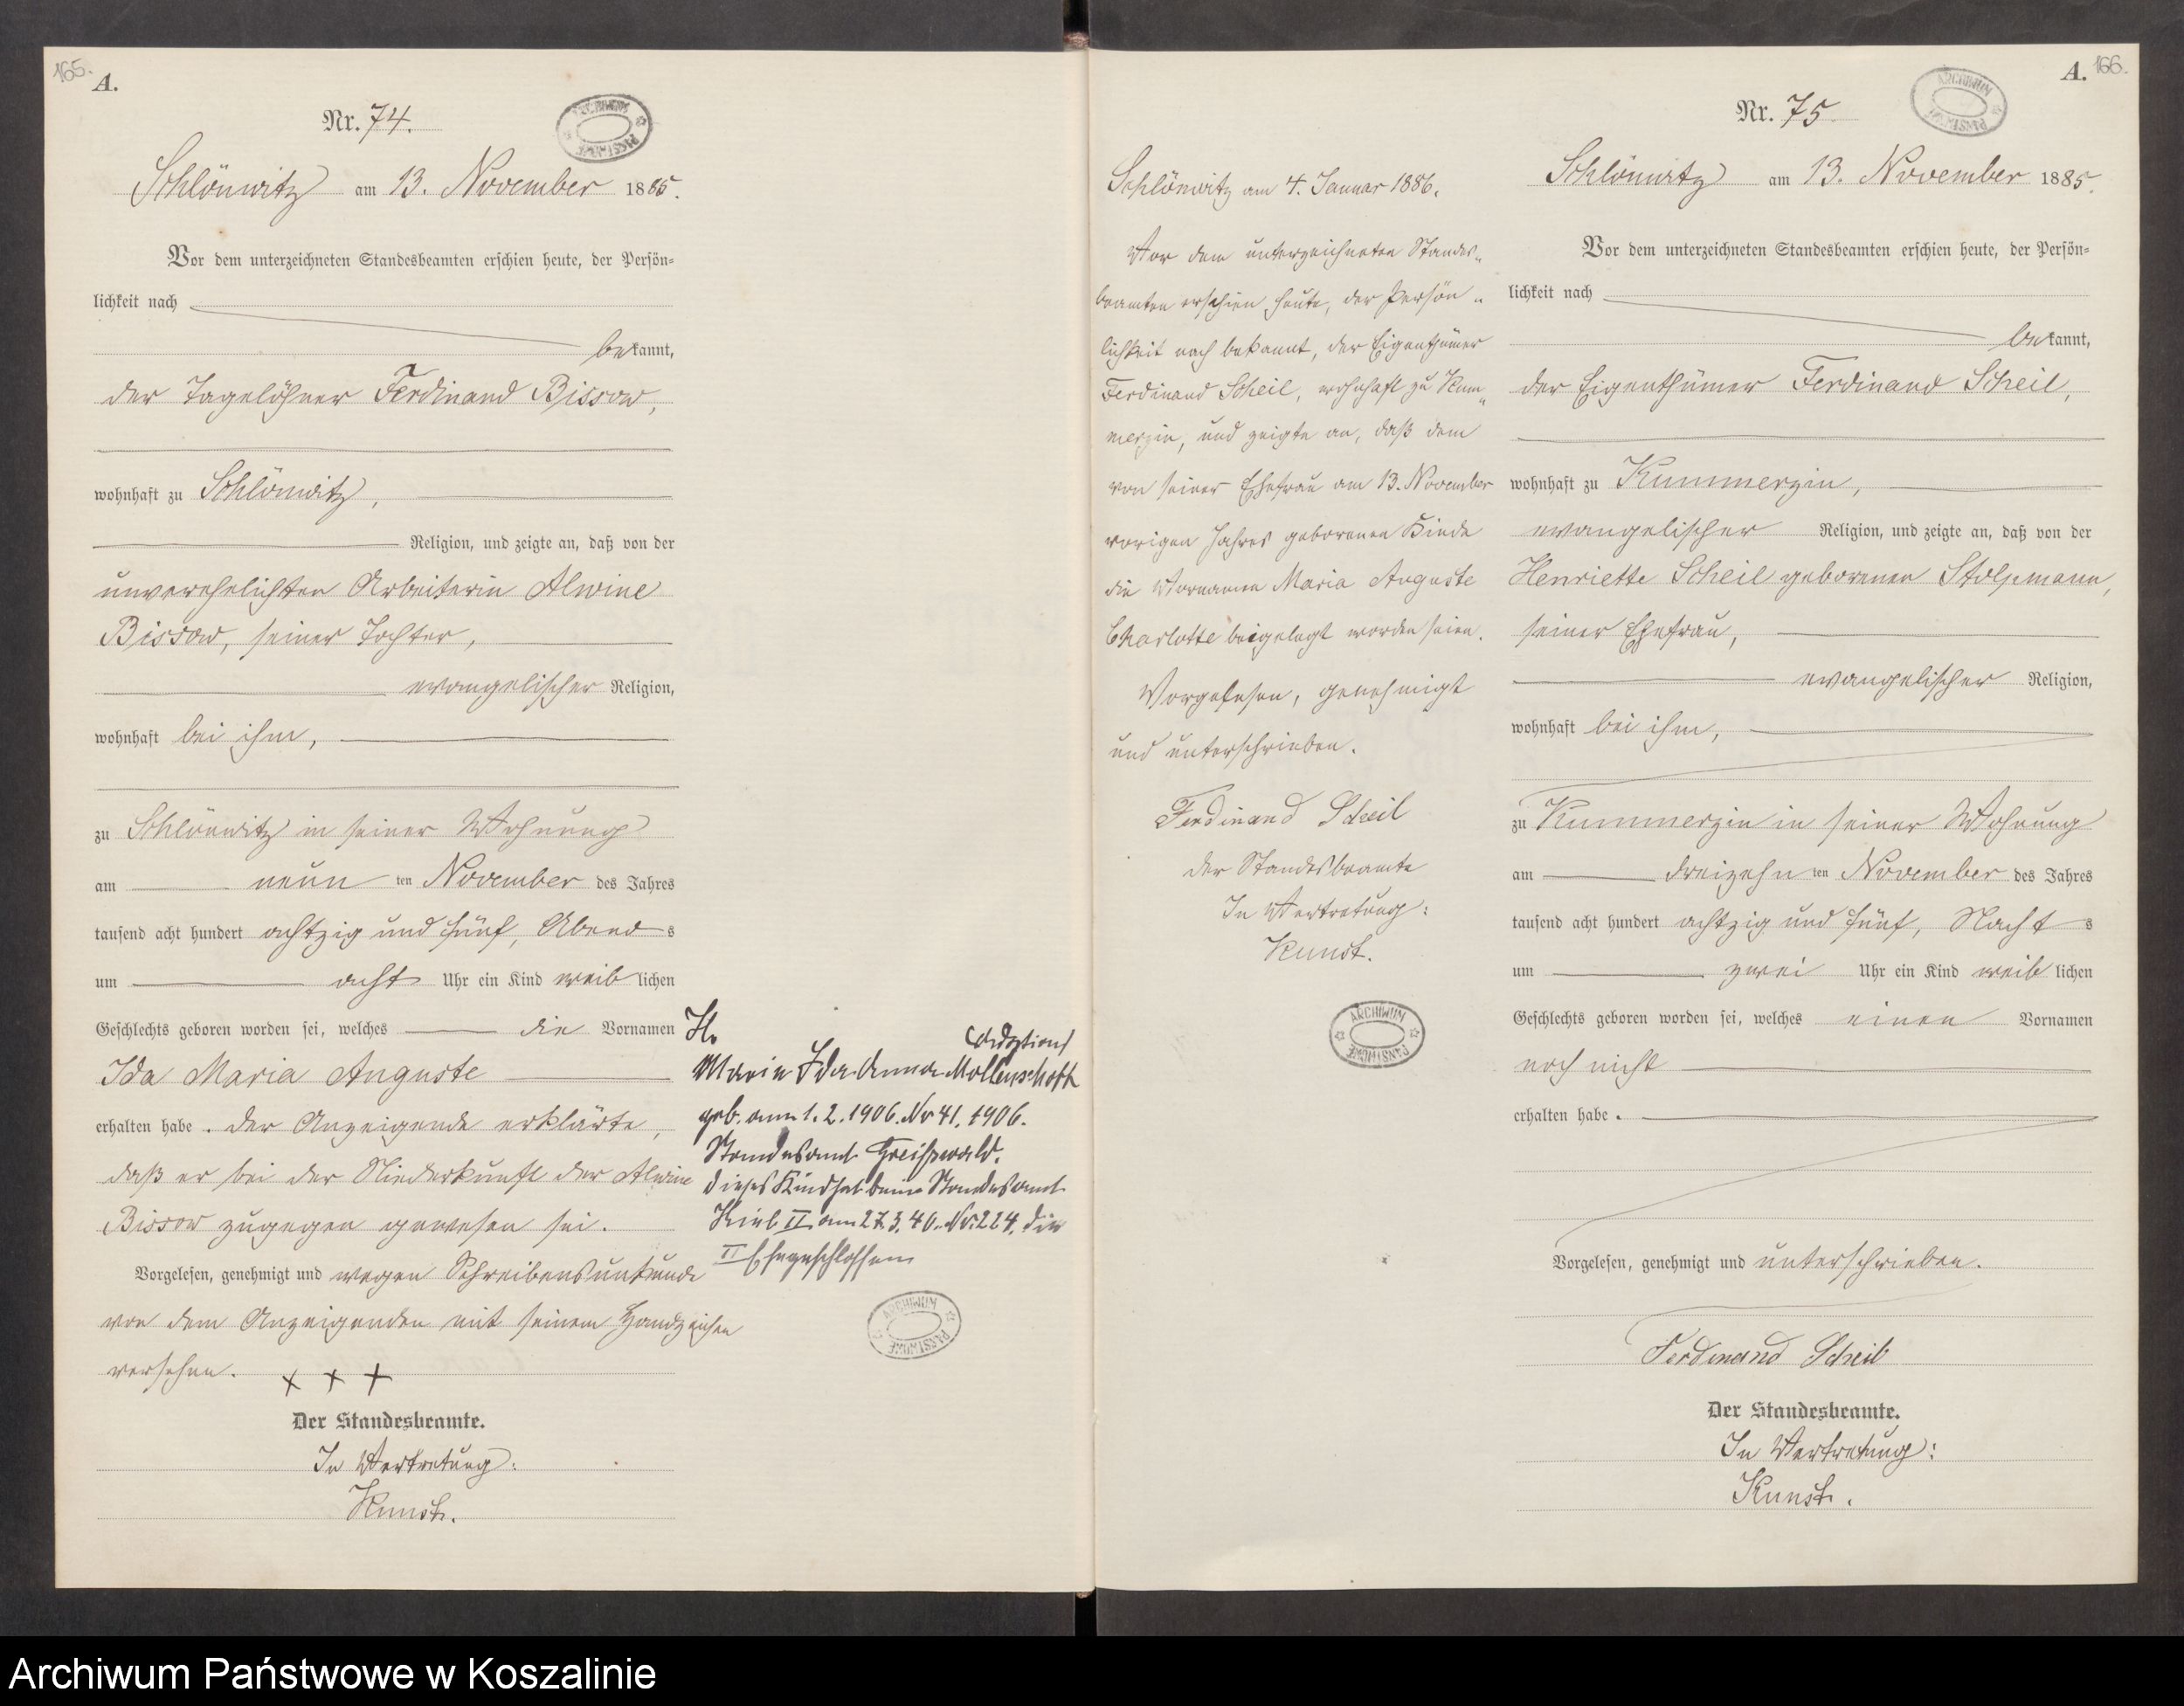 165.
A.
Nr. 74.
ARCHIWUM PAŃSTWOWE
Schlönwitz am 13. November 1885.
Vor dem unterzeichneten Standesbeamten erschien heute, der Persön-
lichkeit nach
bekannt,
der Tagelöhner Ferdinand Bissow,
wohnhaft zu Schlönwitz,
Religion, und zeigte an, daß von der
unverehelichten Arbeiterin Alwine
Bissow, seiner Tochter,
evangelischer Religion,
wohnhaft bei ihm,
zu Schlönwitz in seiner Wohnung
am neun ten November des Jahres
tausend acht hundert achtzig und fünf, Abends
um acht Uhr ein Kind weiblichen
Geschlechts geboren worden sei, welches die Vornamen
Ida Maria Auguste
erhalten habe. Der Anzeigende erklärte,
daß er bei der Niederkunft der Alwine
Bissow zugegen gewesen sei.
Vorgelesen, genehmigt und wegen Schreibensunkunde
von dem Anzeigenden mit seinem Handzeichen
versehen. + + +
Der Standesbeamte.
In Vertretung:
Kunst.
H.
Marie Ida Anna Mollenschott
geb. am 1.2.1906. Nr 41, 1906.
Standesamt Greifswald.
dieses Kind hat beim Standesamt
Kiel II am 27.3.40. Nr. 224, die
II Ehe geschlossen
ARCHIWUM PAŃSTWOWE
A. 166.
Nr. 75
ARCHIWUM PAŃSTWOWE
Schlönwitz am 4. Januar 1886.
Vor dem unterzeichneten Standes-
beamten erschien heute, der Persön-
lichkeit nach bekannt, der Eigenthümer
Ferdinand Scheil, wohnhaft zu Kum-
merzin, und zeigte an, daß dem
von seiner Ehefrau am 13. November
vorigen Jahres geborenen Kinde
die Vornamen Maria Auguste
Charlotte beigelegt worden seien.
Vorgelesen, genehmigt
und unterschrieben.
Ferdinand Scheil
der Standesbeamte
In Vertretung:
Kunst.
ARCHIWUM PAŃSTWOWE
Schlönwitz am 13. November 1885.
Vor dem unterzeichneten Standesbeamten erschien heute, der Persön-
lichkeit nach
bekannt,
der Eigenthümer Ferdinand Scheil,
wohnhaft zu Kummerzin,
evangelischer Religion, und zeigte an, daß von der
Henriette Scheil geborenen Stolpmann,
seiner Ehefrau,
evangelischer Religion,
wohnhaft bei ihm,
zu Kummerzin in seiner Wohnung
am dreizehn ten November des Jahres
tausend acht hundert achtzig und fünf, Nachts
um zwei Uhr ein Kind weiblichen
Geschlechts geboren worden sei, welches einen Vornamen
noch nicht
erhalten habe.
Vorgelesen, genehmigt und unterschrieben.
Ferdinand Scheil
Der Standesbeamte.
In Vertretung:
Kunst.
Archiwum Państwowe w Koszalinie